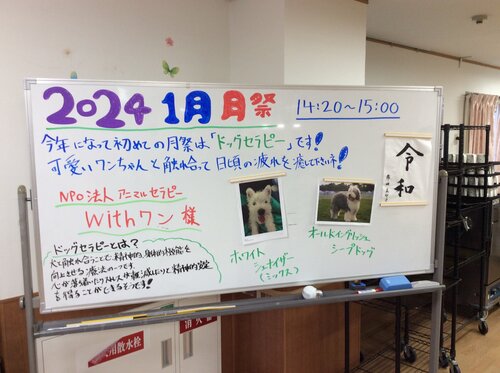 2024 1月 月祭 14:20～15:00
今年になって初めての月祭は「ドッグセラピー」です!
可愛いワンちゃんと触れ合って日頃の疲れを癒して下さいネ!
NPO法人 アニマルセラピー
Withワン 様
ドッグセラピーとは?
犬と触れ合うことで、精神的、身体的機能を
向上させる療法の一つです。
心が落ち着いたりストレスが軽減したりして精神的安定
を得ることができるそうです!
ホワイト
シュナイザー
(ミックス)
オールドイングリッシュ
シープドッグ
令和
用散水栓
消火器